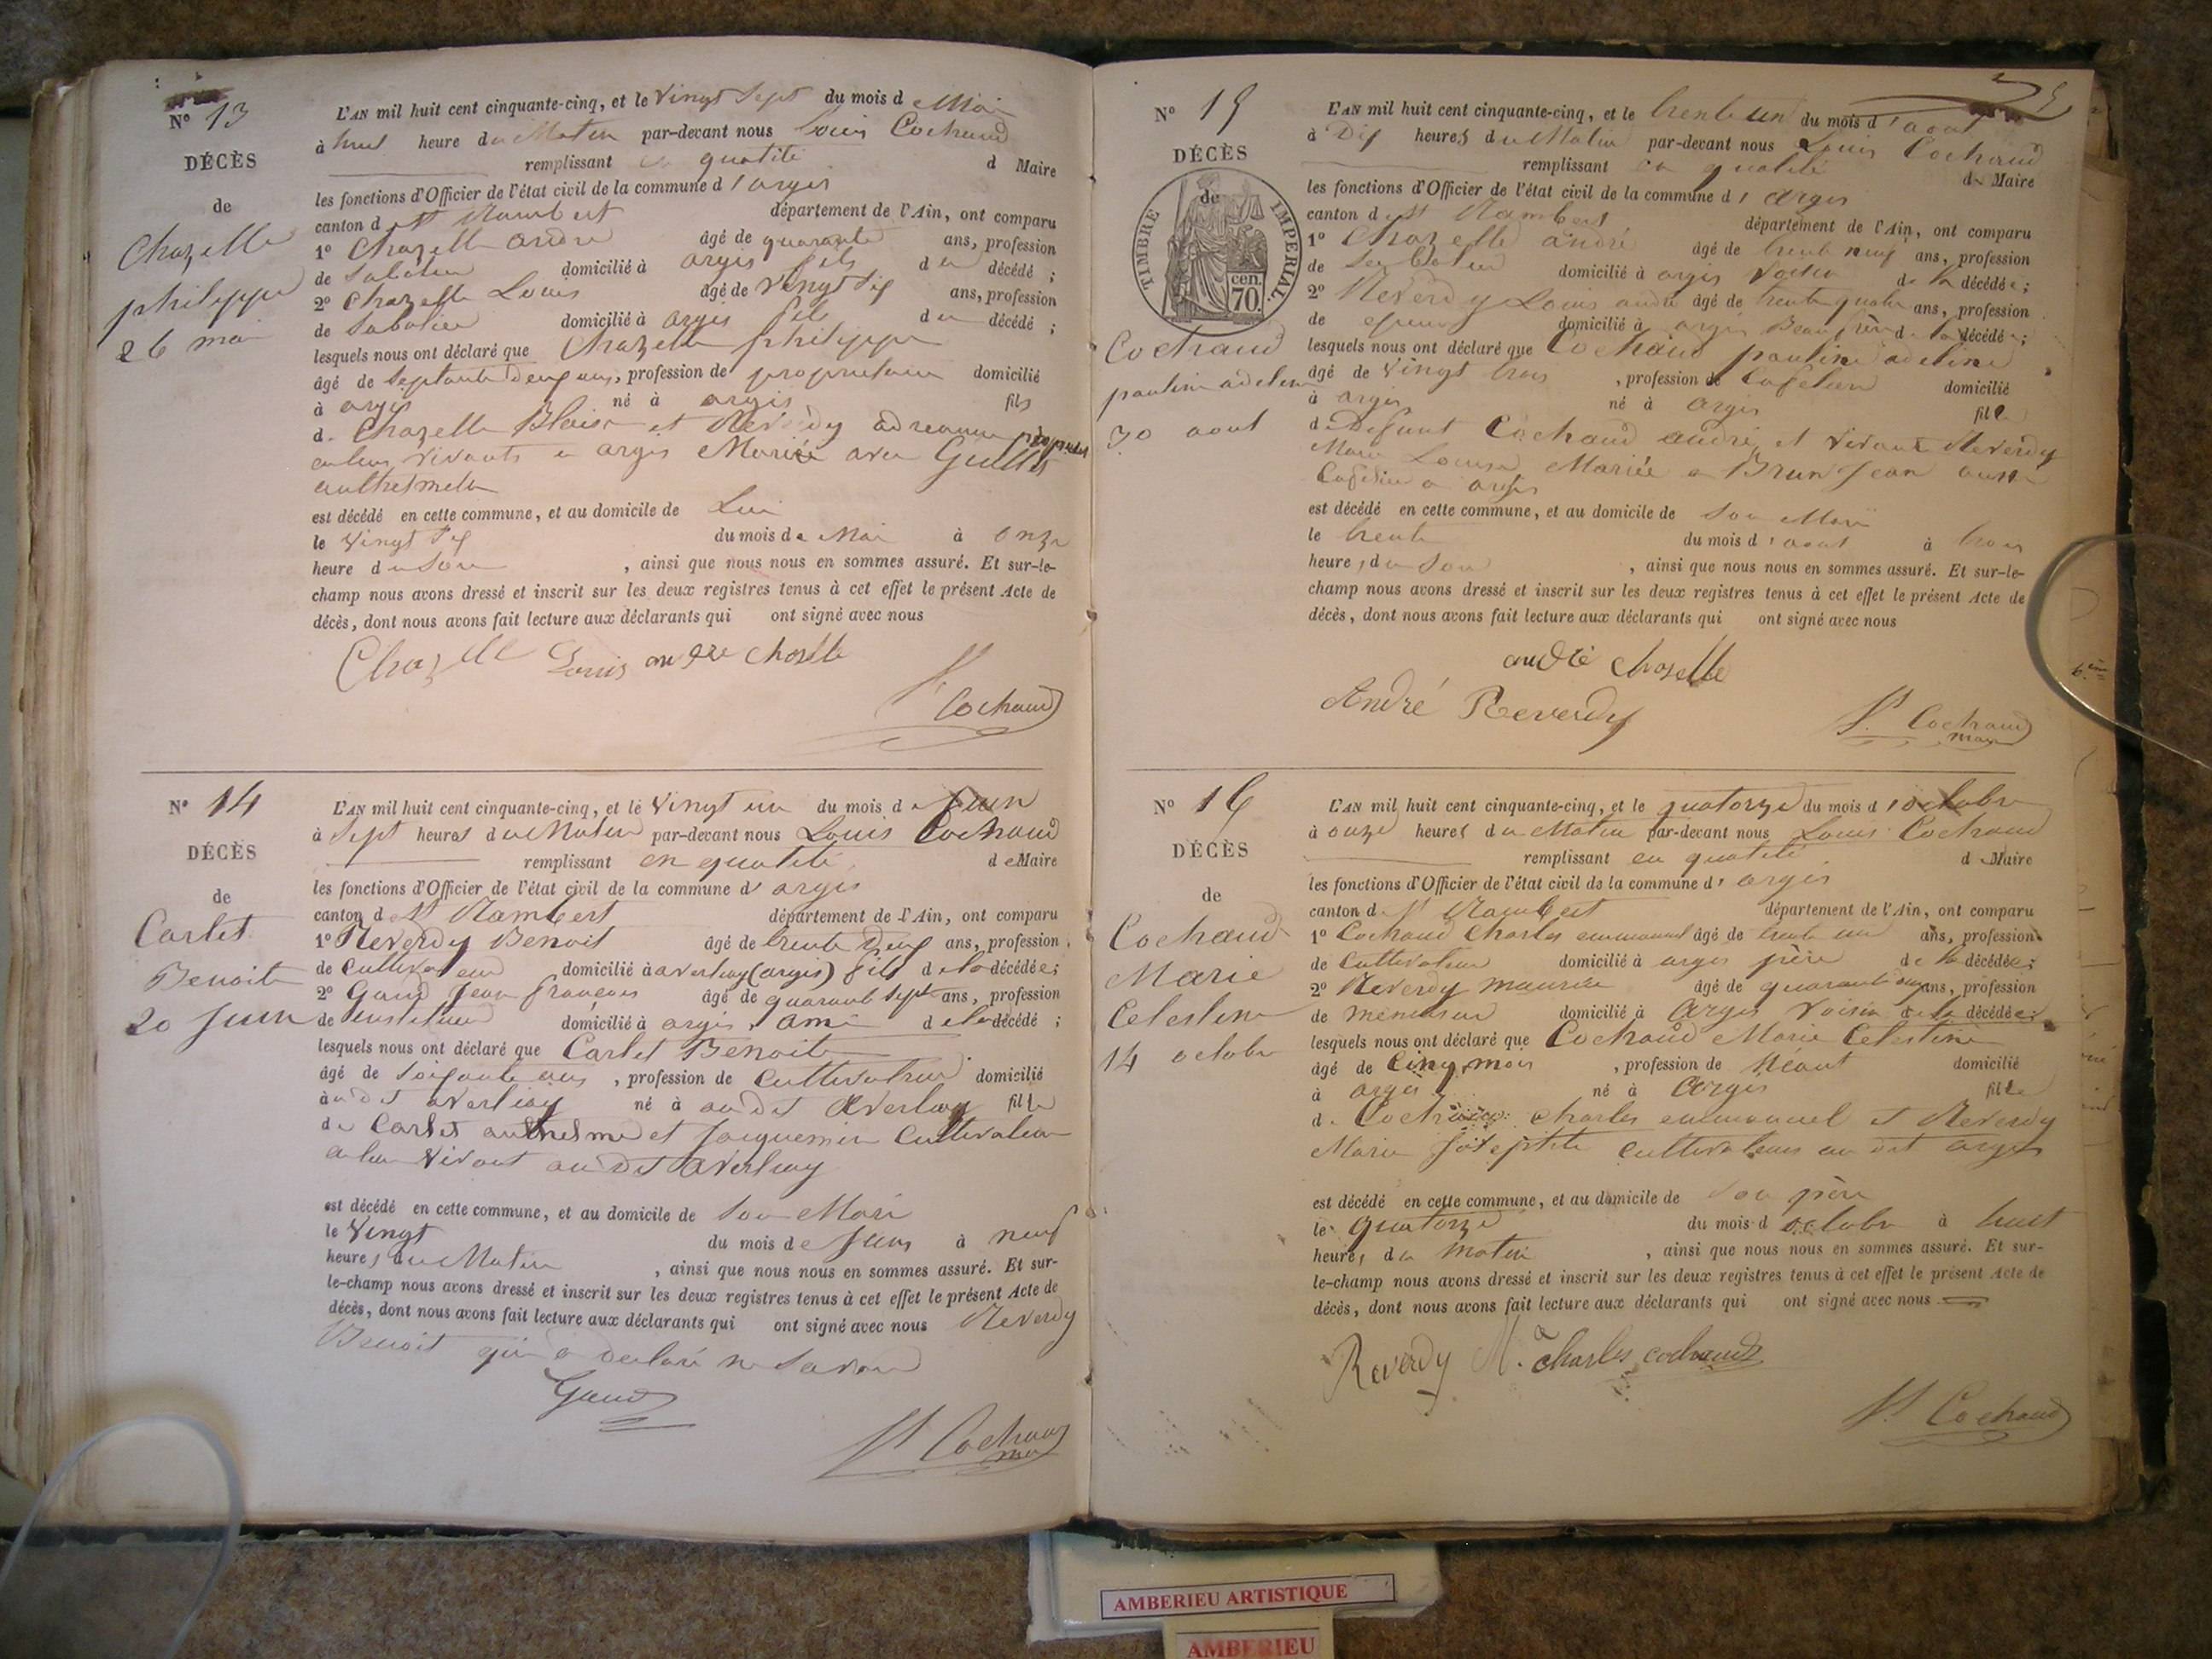 Nº 13
DÉCÈS
de
Chazelle
philippe
26 mai
L'AN mil huit cent cinquante-cinq, et le Vingt Sept du mois d e Mai
à huit heure du Matin par-devant nous Louis Cochaud
remplissant en qualité d Maire
les fonctions d'Officier de l'état civil de la commune d'argis
canton de St Rambert département de l'Ain, ont comparu
1º Chazelle andre âgé de quarante ans, profession
de Sabotier domicilié à argis fils du décédé ;
2º Chazelle Louis âgé de Vingt Six ans, profession
de Sabotier domicilié à argis fils du décédé ;
lesquels nous ont déclaré que Chazelle philippe
âgé de Septante Deux ans, profession de propriétaire domicilié
à argis né à argis fils
de Chazelle Blaise et Réverdy
en leur vivants a argis Marié avec
anthelmette
est décédé en cette commune, et au domicile de Lui
le Vingt Six du mois de Mai à onze
heure du Soir , ainsi que nous nous en sommes assuré. Et sur-le-
champ nous avons dressé et inscrit sur les deux registres tenus à cet effet le présent Acte de
décès, dont nous avons fait lecture aux déclarants qui ont signé avec nous
Chazelle Louis andre choselle
Cochaud
Nº 14
DÉCÈS
de
Carlet
Benoite
20 Juin
L'AN mil huit cent cinquante-cinq, et le Vingt un du mois de Juin
à Sept heures du Matin par-devant nous Louis Cochaud
remplissant en qualité de Maire
les fonctions d'Officier de l'état civil de la commune d'argis
canton de St Rambert département de l'Ain, ont comparu
1º Reverdy Benoit âgé de trente Deux ans, profession
de Cultivateur domicilié à averliay (argis) fils de la décédée ;
2º Gaud Jean françois âgé de quarante Sept ans, profession
de instituteur domicilié à argis, ami de la décédé ;
lesquels nous ont déclaré que Carlet Benoite
âgé de Soixante ans , profession de Cultivatrice domicilié
au dit averliay né à au dit averliay fille
de Carlet anthelme et Jacquemin Cultivateurs
en leur Vivant au dit averliay
est décédé en cette commune, et au domicile de Son Mari
le Vingt du mois de Juin à neuf
heures du Matin , ainsi que nous nous en sommes assuré. Et sur-
le-champ nous avons dressé et inscrit sur les deux registres tenus à cet effet le présent Acte de
décès, dont nous avons fait lecture aux déclarants qui ont signé avec nous Reverdy
Benoit qui a declaré ne Savoir
Gaud
Cochaud
maire
Nº 15
DÉCÈS
de
TIMBRE IMPERIAL.
70 cen.
Cochaud
pauline adeline
30 aout
L'AN mil huit cent cinquante-cinq, et le trente un du mois d'aout
à Dix heures du Matin par-devant nous Louis Cochaud
remplissant en qualité de Maire
les fonctions d'Officier de l'état civil de la commune d'argis
canton de St Rambert département de l'Ain, ont comparu
1º Chazelle andré âgé de trente neuf ans, profession
de Sabotier domicilié à argis Voisin de la décédée ;
2º Reverdy Louis andré âgé de trente quatre ans, profession
de domicilié à argis Beau frère de la décédé ;
lesquels nous ont déclaré que Cochaud pauline adeline
âgé de Vingt trois , profession de Cafetière domicilié
à argis né à argis fille
de Defunt Cochaud andré, et Vivante Reverdy
Marie Louise, Mariée a Brun Jean aussi
Cafetier a argis
est décédé en cette commune, et au domicile de Son Mari
le trente du mois d'aout à trois
heures du Soir , ainsi que nous nous en sommes assuré. Et sur-le-
champ nous avons dressé et inscrit sur les deux registres tenus à cet effet le présent Acte de
décès, dont nous avons fait lecture aux déclarants qui ont signé avec nous
andré chazelle
André Reverdy
Cochaud
maire
Nº 16
DÉCÈS
de
Cochaud
Marie
Celestine
14 octobre
L'AN mil huit cent cinquante-cinq, et le quatorze du mois d'octobre
à onze heures du Matin par-devant nous Louis Cochaud
remplissant en qualité de Maire
les fonctions d'Officier de l'état civil de la commune d'argis
canton de St Rambert département de l'Ain, ont comparu
1º Cochaud Charles emmanuel âgé de trente un ans, profession
de Cultivateur domicilié à argis père de la décédée ;
2º Reverdy maurice âgé de quarante ans, profession
de menuisier domicilié à argis Voisin de la décédée ;
lesquels nous ont déclaré que Cochaud Marie Celestine
âgé de Cinq mois , profession de Néant domicilié
à argis né à argis fille
de Cochaud charles emmanuel et Reverdy
Marie Josephte cultivateurs au dit argis
est décédé en cette commune, et au domicile de Son père
le quatorze du mois d octobre à huit
heures du matin , ainsi que nous nous en sommes assuré. Et sur-
le-champ nous avons dressé et inscrit sur les deux registres tenus à cet effet le présent Acte de
décès, dont nous avons fait lecture aux déclarants qui ont signé avec nous
Reverdy M. charles cochaud
Cochaud
AMBERIEU ARTISTIQUE
AMBERIEU